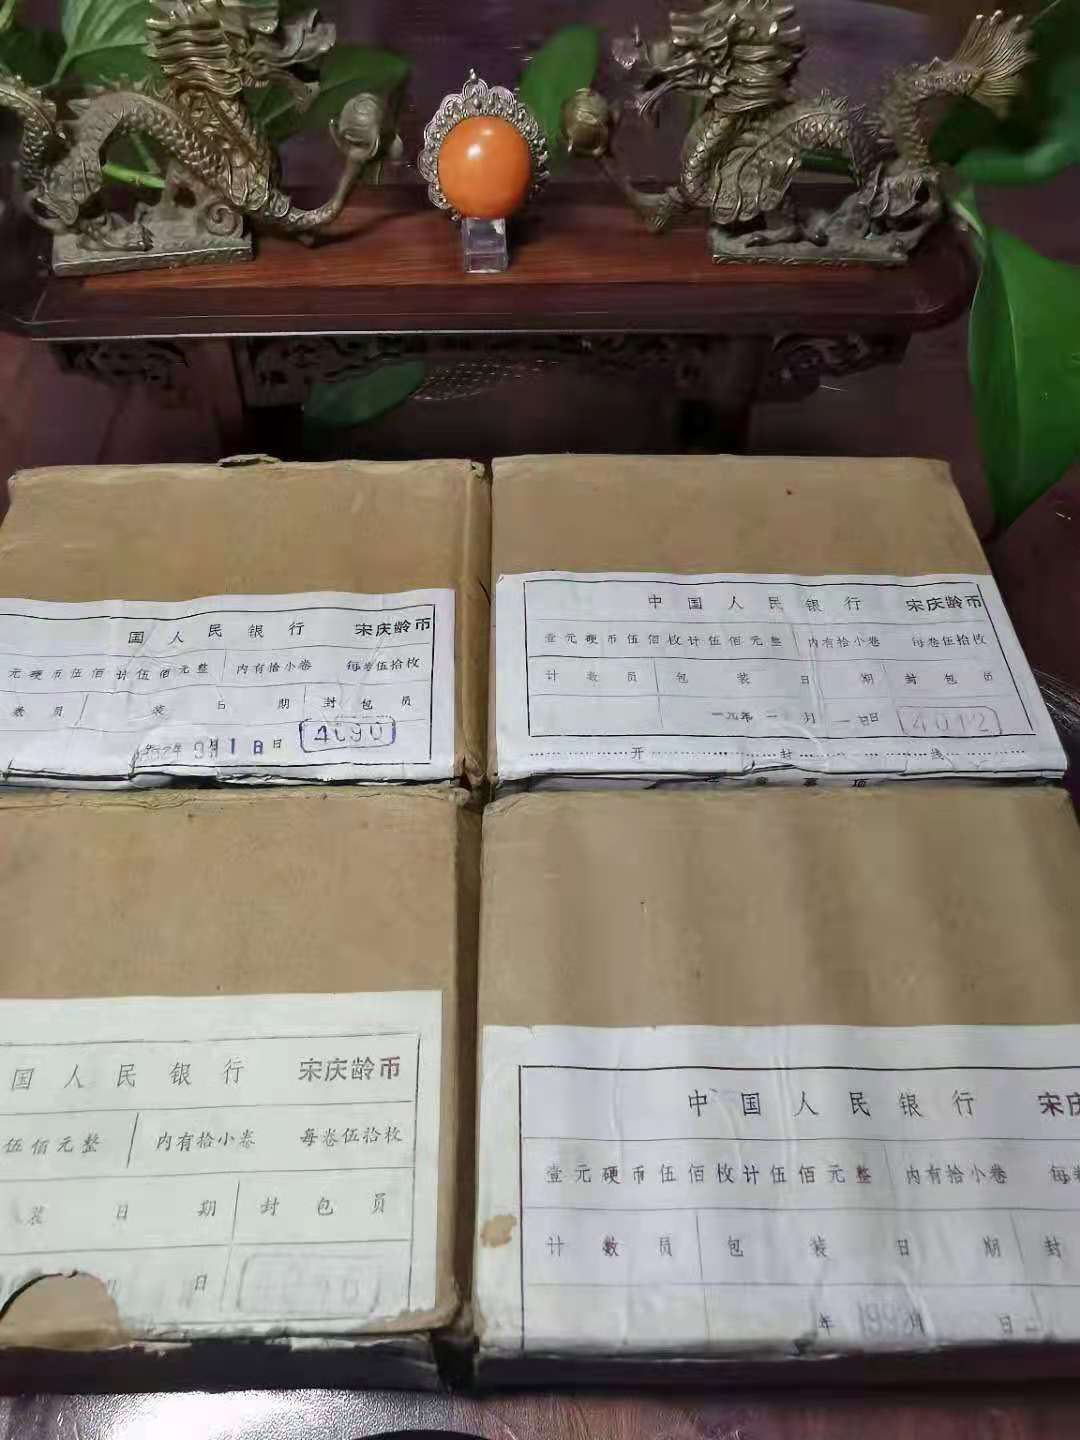 国人民银行 宋庆龄币
元硬币伍佰计伍佰元整 内有拾小卷 每卷伍拾枚
数员 装日期 封包员
9月1日日 4090
中国人民银行 宋庆龄币
壹元硬币伍佰枚计伍佰元整 内有拾小卷 每卷伍拾枚
计数员 包装日期 封包员
一九年一月一日日 4012
开封线
意事项
国人民银行 宋庆龄币
伍佰元整 内有拾小卷 每卷伍拾枚
装日期 封包员
日
中国人民银行 宋庆
壹元硬币伍佰枚计伍佰元整 内有拾小卷 每卷
计数员 包装日期 封
年 月 日